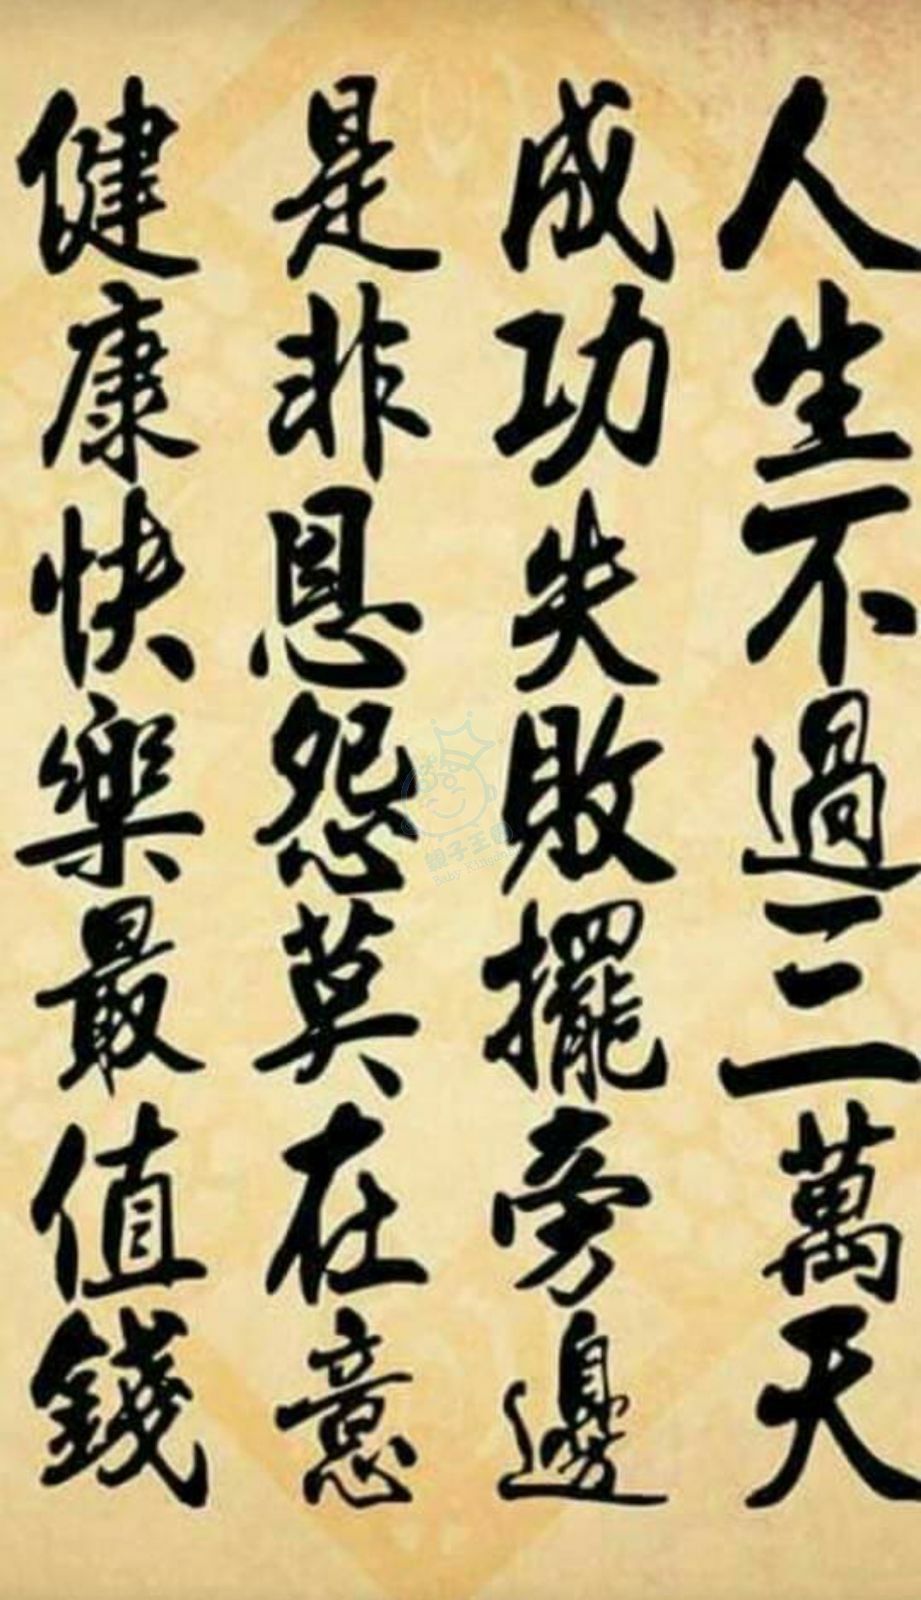 人生不過三萬天
成功失敗擺旁邊
是非恩怨莫在意
健康快樂最值錢
親子王國
Baby Kingdom